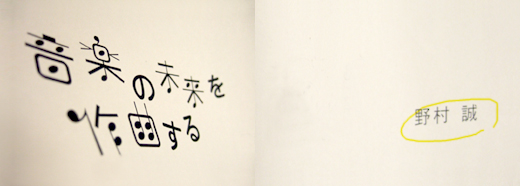 音楽の未来を
作曲する
野村 誠